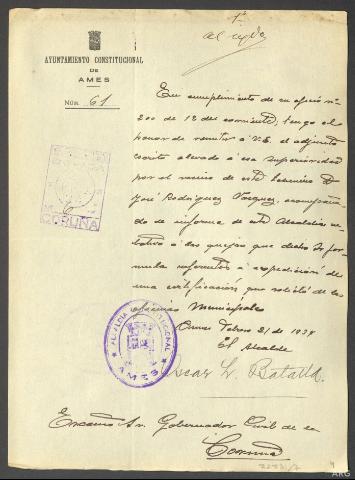 1º
al rgdo
AYUNTAMIENTO CONSTITUCIONAL
DE
AMES
NÚM. 61
En cumplimiento de su oficio nº
200 de 18 del corriente, tengo el
honor de remitir á V.E. el adjunto
escrito elevado á esa superioridad
por el vecino de este término D.
José Rodríguez Vázquez, acompaña-
do de informe de esta Alcaldía re-
lativo á las quejas que dicho Sr. for-
mula referentes á expedición de
una certificación que solicitó de las
oficinas Municipales
Ames Febrero 21 de 1934
El Alcalde
Oscar L. Batalla
CORUÑA
ALCALDIA CONSTITUCIONAL
AMES
Excmo Sr. Gobernador Civil de la
Coruña
ARG